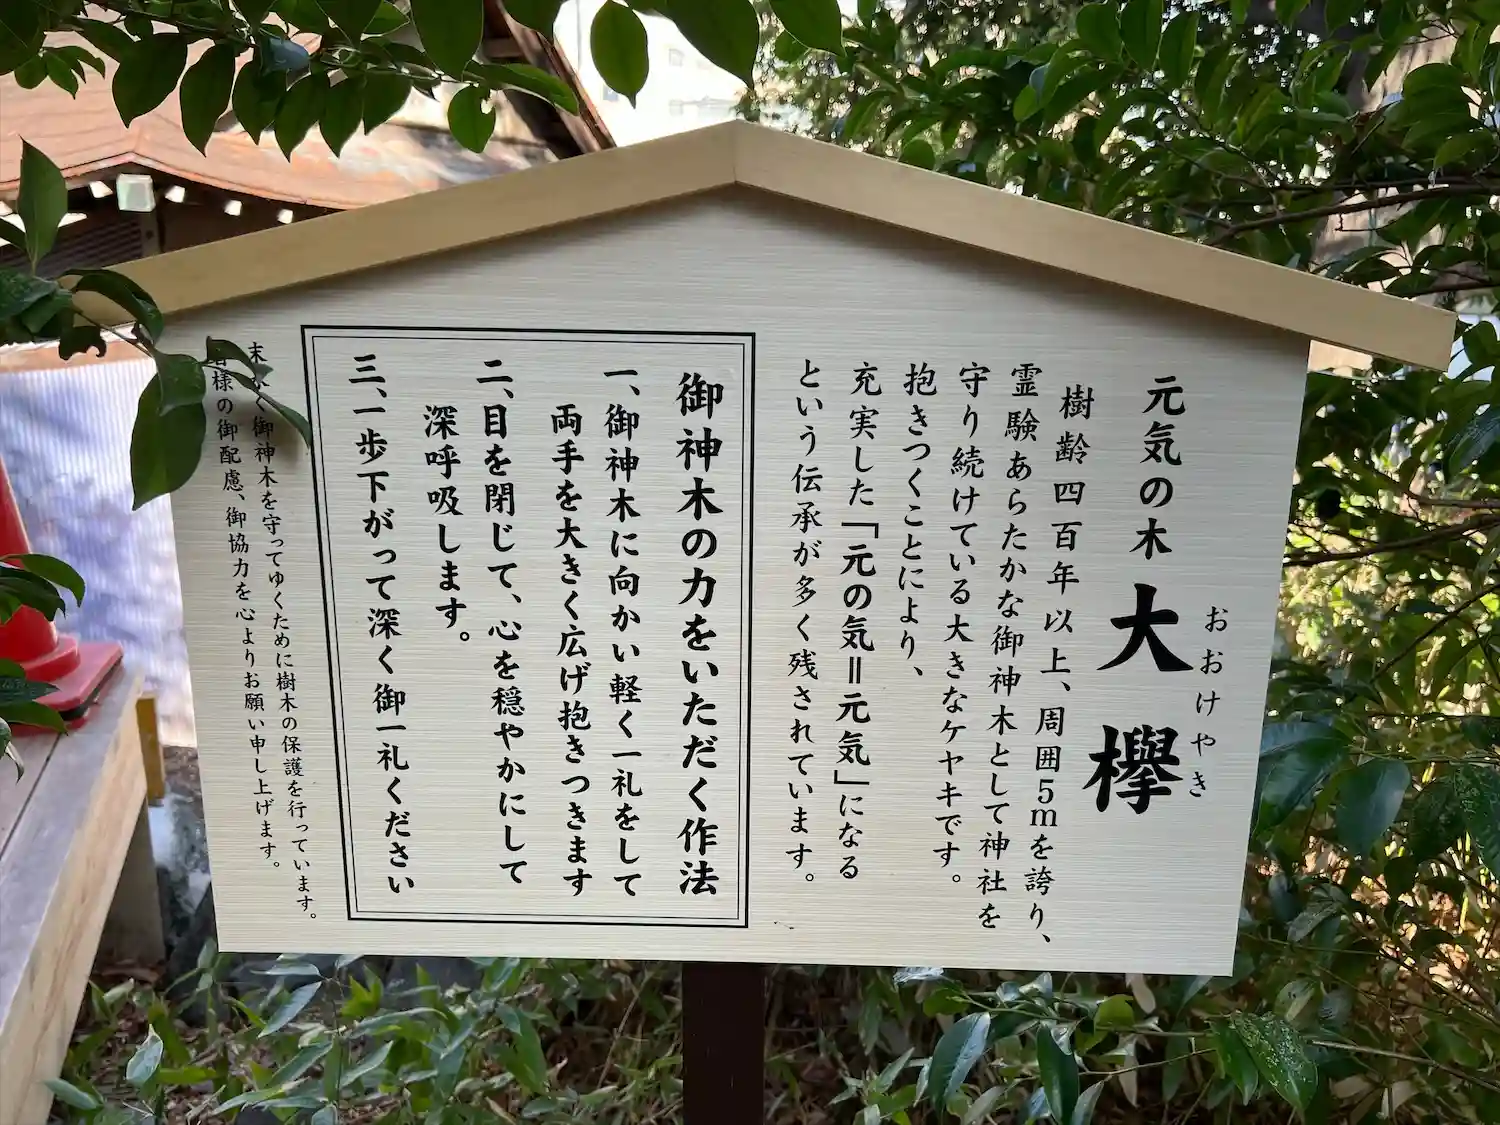 元気の木 大欅
おおけやき
樹齢四百年以上、周囲5mを誇り、
霊験あらたかな御神木として神社を
守り続けている大きなケヤキです。
抱きつくことにより、
充実した「元の気=元気」になる
という伝承が多く残されています。
御神木の力をいただく作法
一、御神木に向かい軽く一礼をして
両手を大きく広げ抱きつきます
二、目を閉じて、心を穏やかにして
深呼吸します。
三、一歩下がって深く御一礼ください
末く御神木を守ってゆくために樹木の保護を行っています。
様の御配慮、御協力を心よりお願い申し上げます。